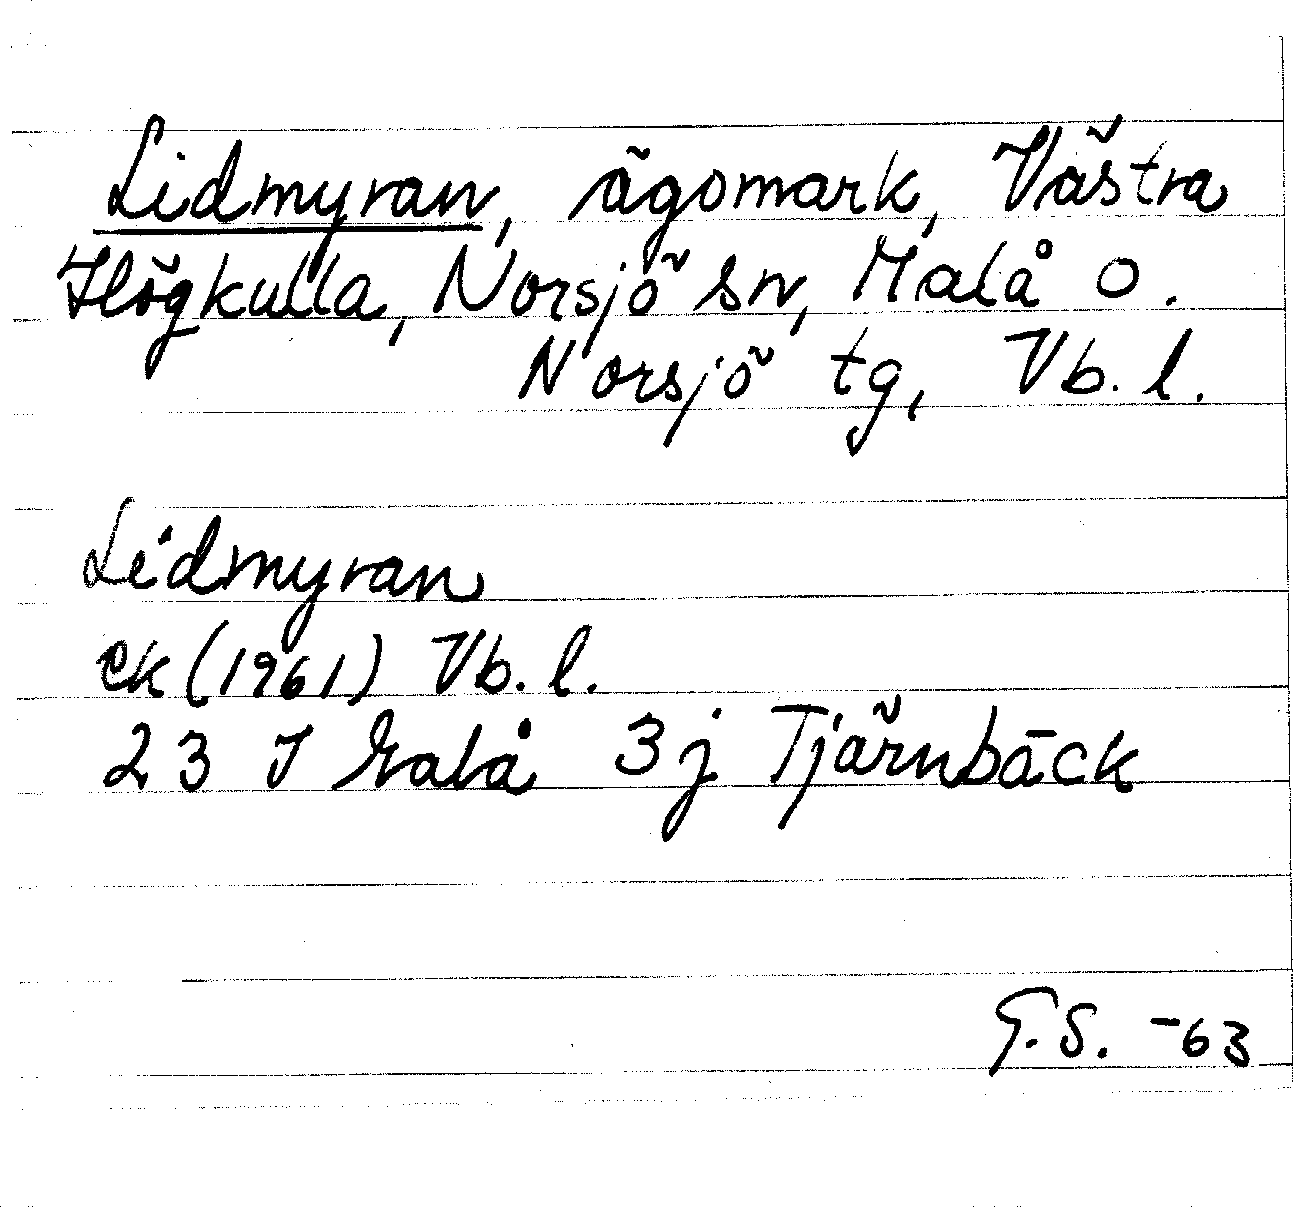 Lidmyran, ägomark, Västra
Högkulla, Norsjö sn, Malå o.
Norsjö tg, Vb. l.
Lidmyran
ek (1961) Vb. l.
23 I Malå 3j Tjärnbäck
G.S. -63